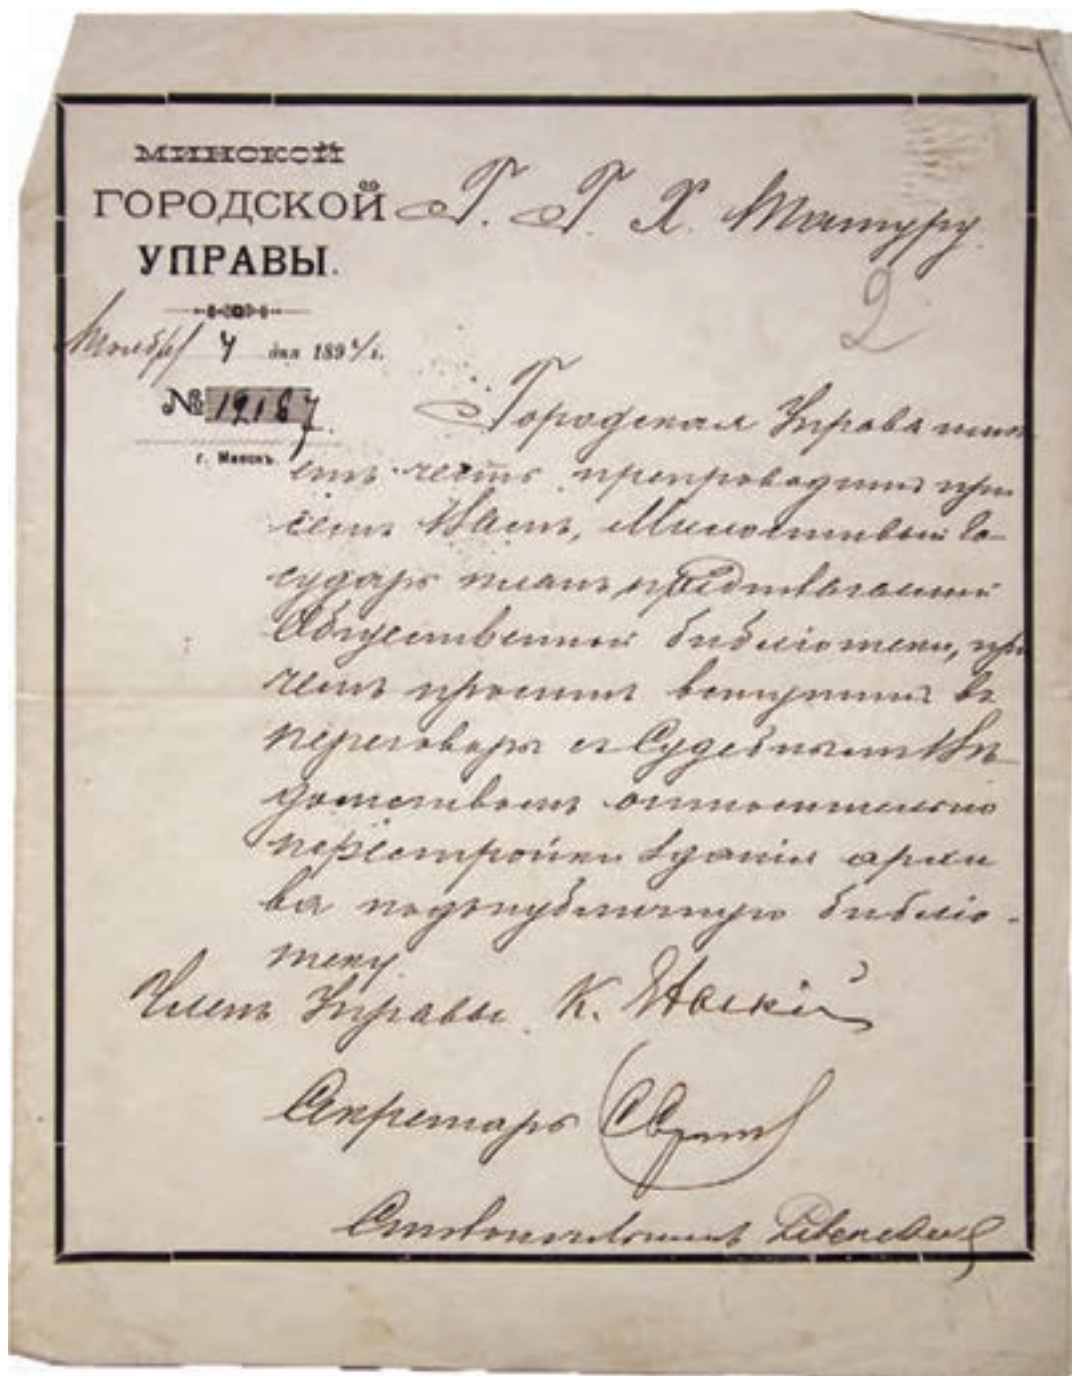 МИНСКОЙ
ГОРОДСКОЙ
УПРАВЫ.
Г. Г. Х. Татуру.
2
Ноября 4 дня 1894 г.
№ 12167.
г. Минскъ.
Городская Управа имѣ-
етъ честь препроводить при
семъ Вамъ, Милостивый Го-
сударь планъ предполагаемой
Общественной библіотеки, при
чемъ проситъ вступить въ
переговоры съ Судебнымъ Вѣ-
домствомъ относительно
перестройки зданія архи
ва подъ публичную библіо-
теку.
Членъ Управы К.
Секретарь
Столоначальникъ